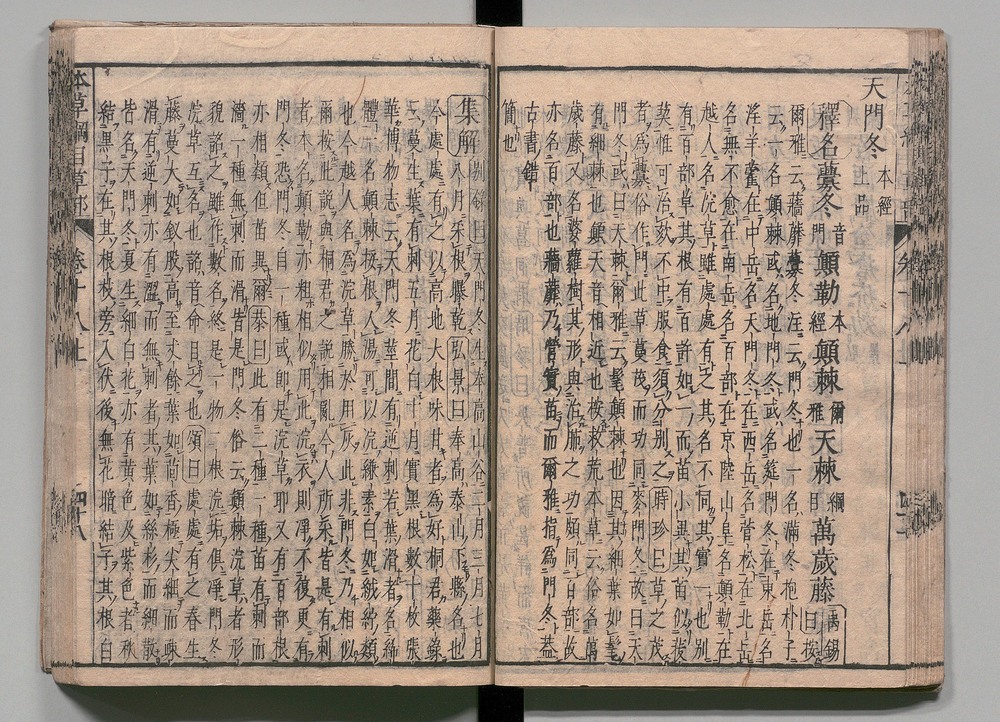 天門冬 本經上品
釋名虋冬 音門 顛勒 本經 顛棘 爾雅 天棘 綱目 萬歲藤 禹錫曰按
爾雅云蘠蘼虋冬注云門冬也一名滿冬抱朴子
云一名顛棘或名地門冬或名筵門冬在東岳名
淫羊藿在中岳名天門冬在西岳名菅松在北岳
名無不愈在南岳名百部在京陸山阜名顛勒在
越人名浣草雖處處有之其名不同其實一也別
有百部草其根有百許如一而苗小異其苗似菝
葜惟可治欬不中服食須分別之時珍曰草之茂
者為虋俗作門此草蔓茂而功同麥門冬故曰天
門冬或曰天棘爾雅云髦顛棘也因其細葉如髦
有細棘也顛天音相近也按救荒本草云俗名萬
歲藤又名婆蘿樹其形與治肺之功頗同百部故
亦名百部也蘠蘼乃營實苗而爾雅指為門冬蓋
古書錯
簡也
集解 別錄曰天門冬生奉高山谷二月三月七月
八月采根曝乾弘景曰奉高泰山下縣名也
今處處有之以高地大根味甘者為好桐君藥錄
云蔓生葉有刺五月花白十月實黑根數十枚張
華博物志云天門冬莖間有逆刺若葉滑者名絺
體一名顛棘挼根入湯可以浣縑素白如絨紵類
也今越人名為浣草勝於用灰此非門冬乃相似
爾按此說與桐君之說相亂今人所采皆是有刺
者本名顛勒亦粗相似用此浣衣則淨不復更有
門冬恐門冬自一種或即是浣草耶又有百部根
亦相類但苗異爾恭曰此有二種一種苗有刺而
澀一種無刺而滑皆是門冬俗云顛棘浣草者形
貌詺之雖作數名終是一物二根浣垢俱淨門冬
浣草互名也詺音命目之也頌曰處處有之春生
藤蔓大如釵股高至丈餘葉如茴香極尖細而疏
滑有逆刺亦有澀而無刺者其葉如絲杉而細散
皆名天門冬夏生細白花亦有黃色及紫色者秋
結黑子在其根枝旁入伏後無花暗結子其根白
本草綱目草部 卷十八上 四十八